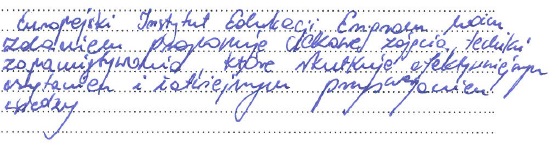 Europejski Instytut Edukacji Empraem moim
zdaniem proponuje ciekawe zajęcia, techniki
zapamiętywania które skutkuje efektywniejszym
czytaniem i łatwiejszym przyswajaniem
wiedzy